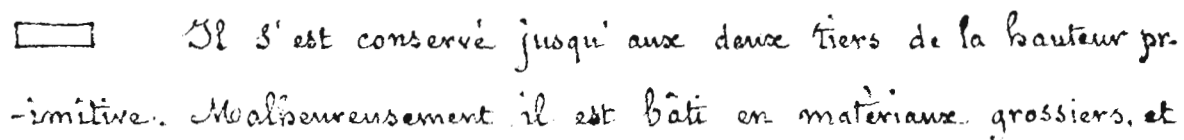 Il s'est conservé jusqu'aux deux tiers de la hauteur pr-
-imitive. Malheureusement il est bâti en matèriaux grossiers, et